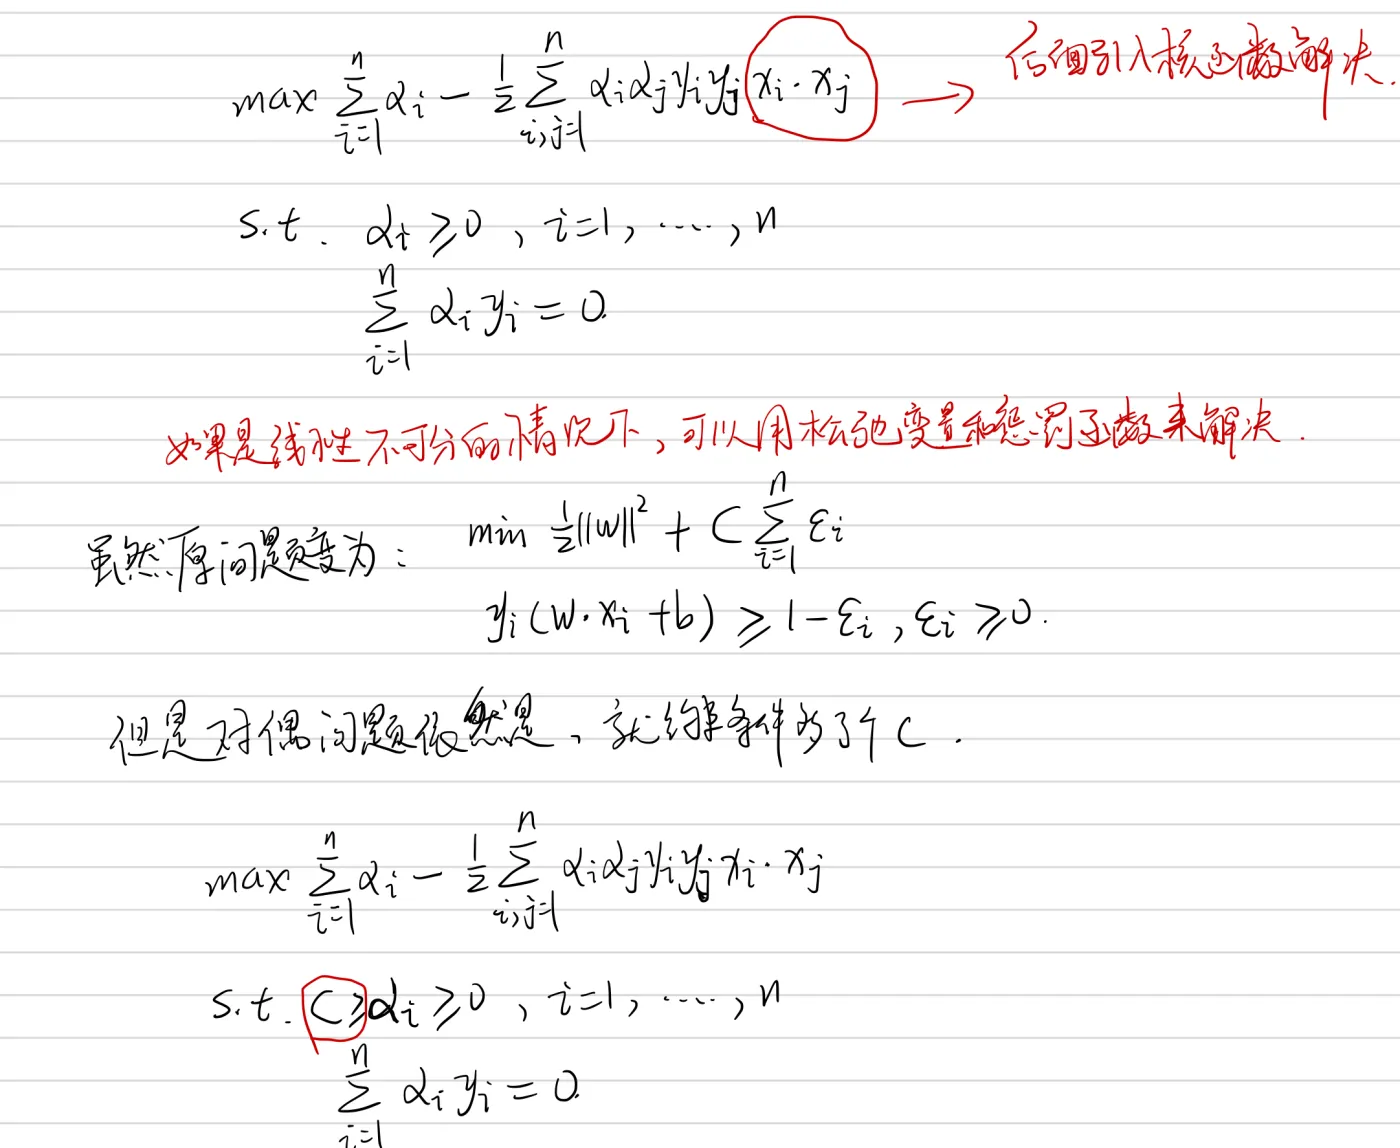 max ∑_{i=1}^{n} α_i − 1/2 ∑_{i,j=1}^{n} α_i α_j y_i y_j x_i · x_j → 后面引入核函数解决.
s.t. α_i ≥ 0 , i=1, ····, n
∑_{i=1}^{n} α_i y_i = 0.
如果是线性不可分的情况下，可以用松弛变量和惩罚函数来解决.
虽然原问题变为： min 1/2||w||² + C ∑_{i=1}^{n} ε_i
y_i (w·x_i + b) ≥ 1 − ε_i , ε_i ≥ 0.
但是对偶问题依然是、就约束条件多了个 C .
max ∑_{i=1}^{n} α_i − 1/2 ∑_{i,j=1}^{n} α_i α_j y_i y_j x_i · x_j
s.t. C ≥ α_i ≥ 0 , i=1, ····, n
∑_{i=1}^{n} α_i y_i = 0.